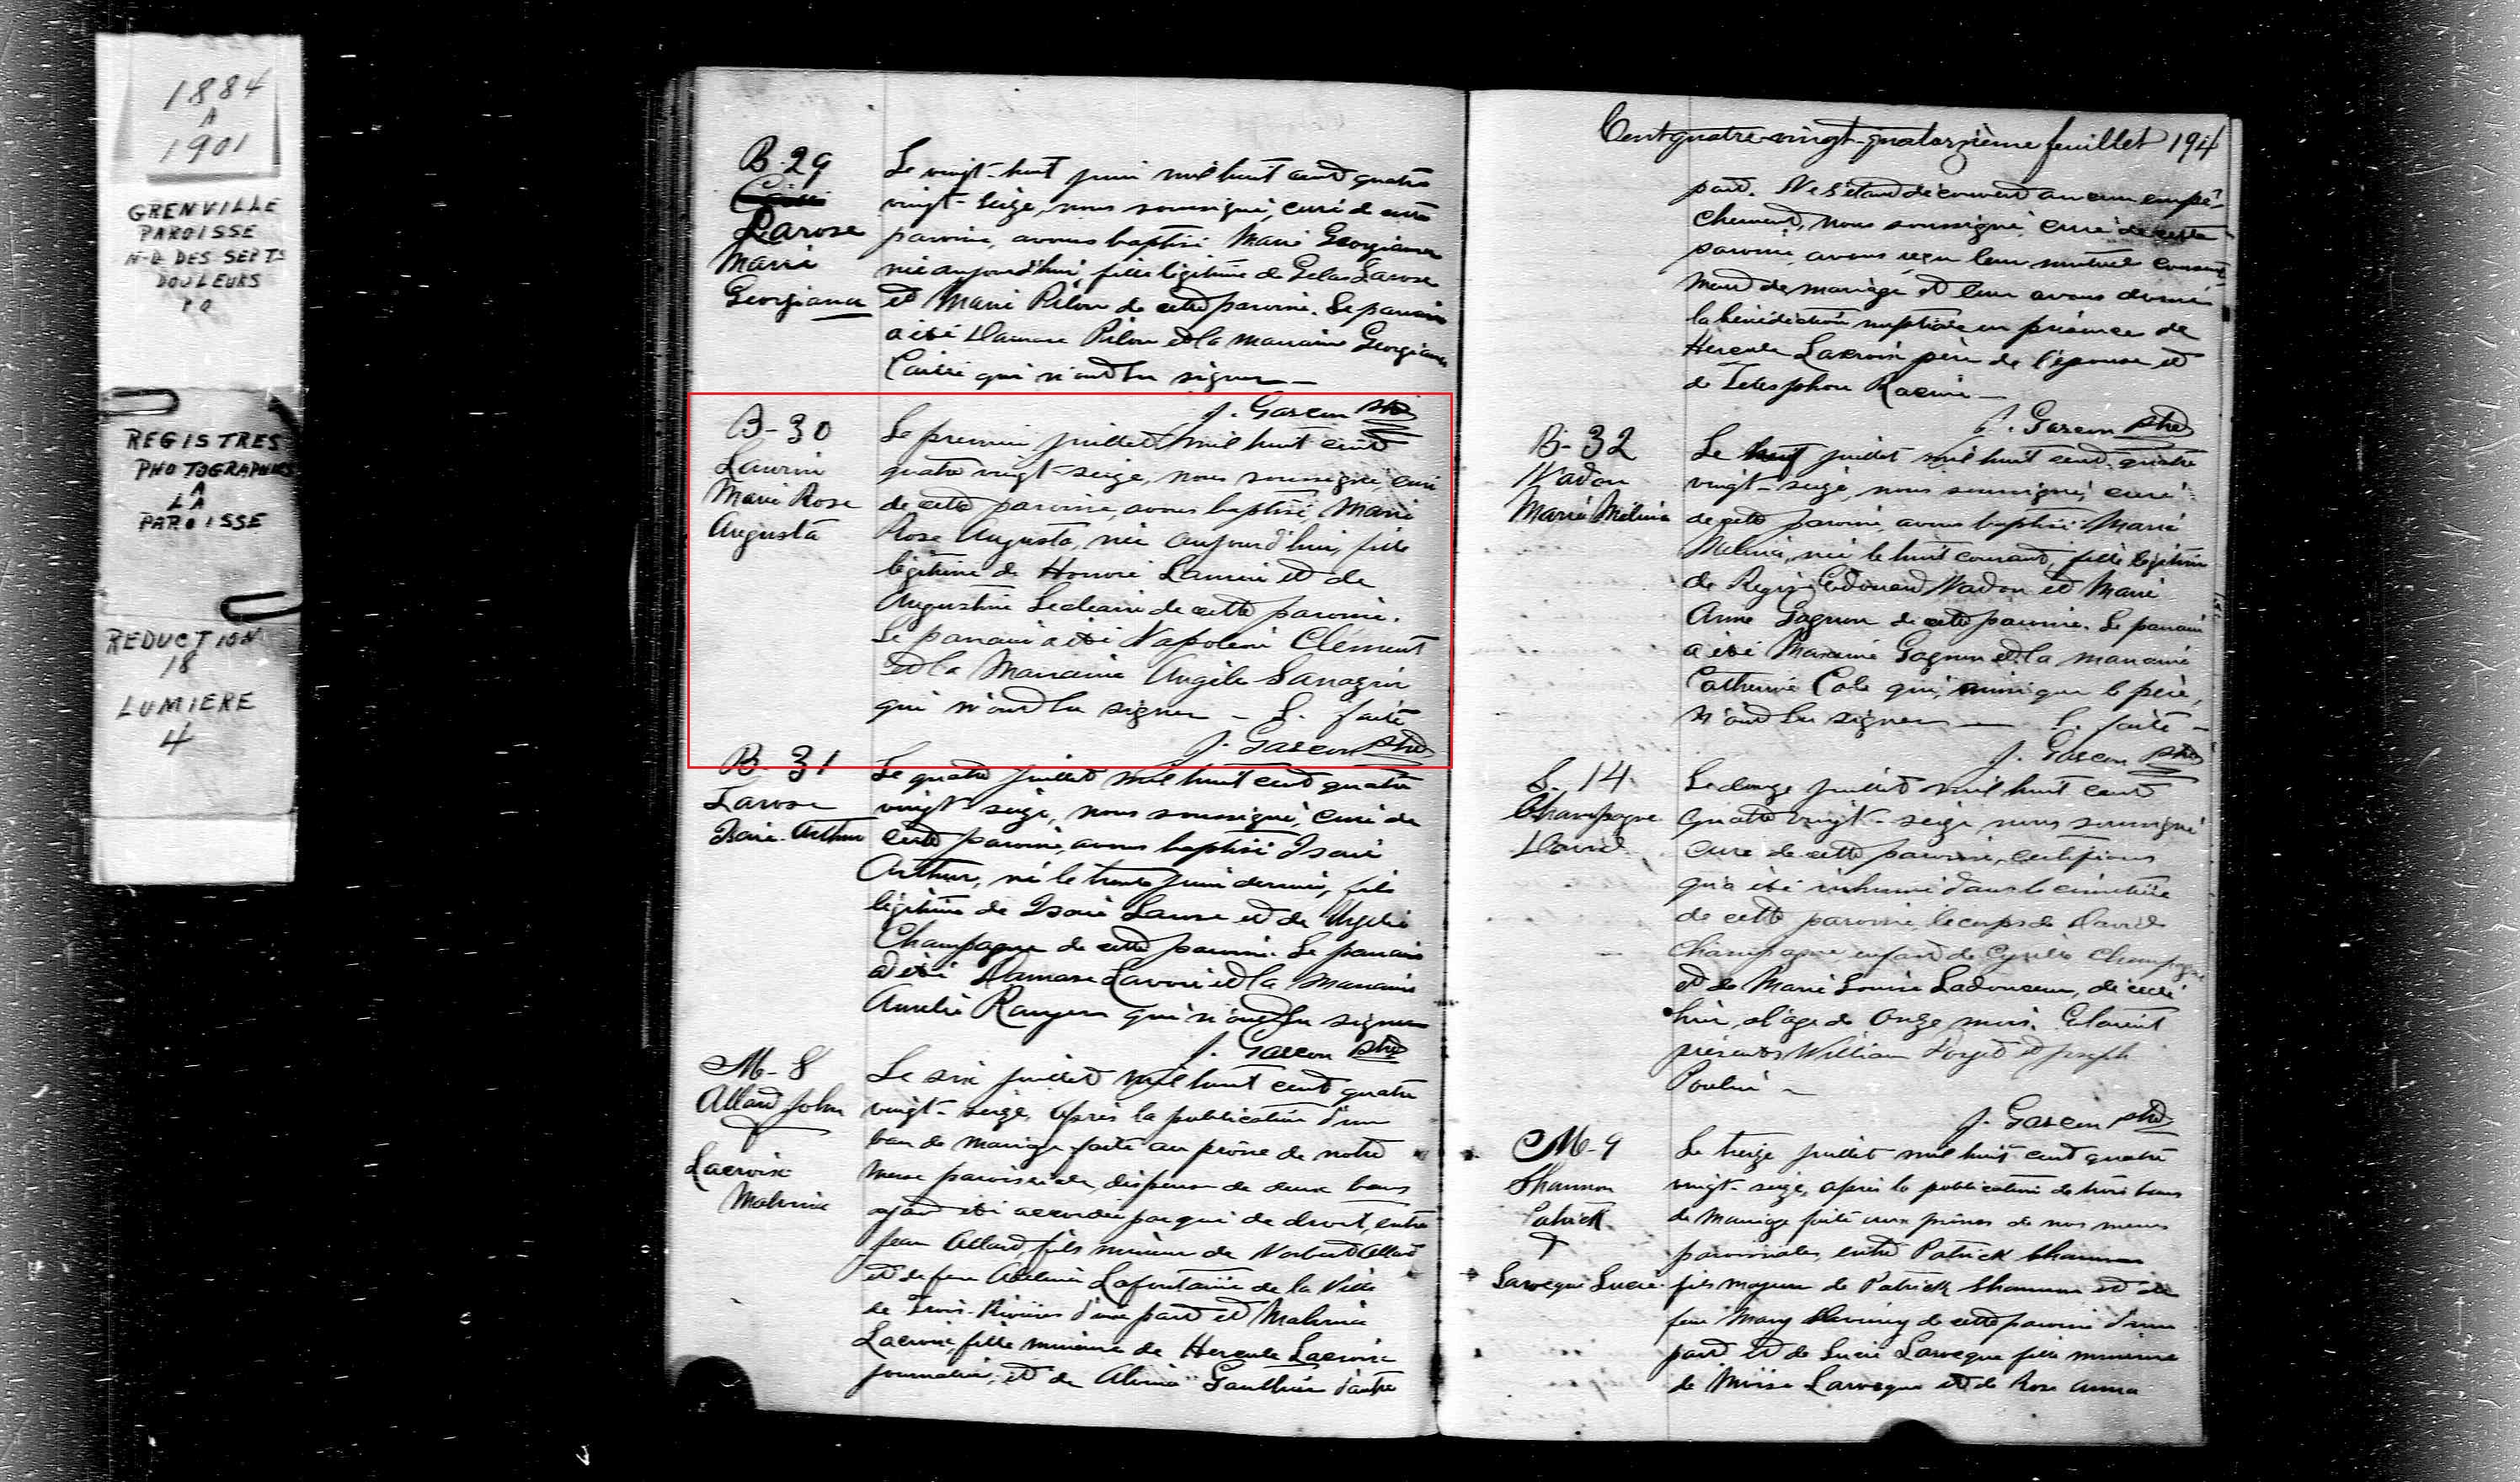 1884
A
1901
GRENVILLE
PAROISSE
N-D DES SEPTS
DOULEURS
P Q
REGISTRES
PHOTOGRAPHIES
A
LA
PAROISSE
REDUCTION
18
LUMIERE
4
B-29
Larose
Marie
Georgiana
Le vingt-huit juin mil huit cent quatre
vingt-seize, nous soussigné, curé de cette
paroisse, avons baptisé Marie Georgiana
née aujourd'hui, fille légitime de Gelas Larose
et Marie Pilon de cette paroisse. Le parrain
a été Damase Pilon et la marraine Georgiana
qui n'ont su signer —
J. Gascon ptre
B-30
Laurin
Marie Rose
Augusta
Le premier juillet mil huit cent
quatre vingt-seize, nous soussigné, curé
de cette paroisse, avons baptisé Marie
Rose Augusta, née aujourd'hui, fille
légitime de Honoré Laurin et de
Augustine Leclair de cette paroisse.
Le parrain a été Napoléon Clément
et la Marraine Angèle Sarrazin
qui n'ont su signer — L. faite
J. Gascon ptre
B-31
Larose
Isaie-Arthur
Le quatre juillet mil huit cent quatre
vingt-seize, nous soussigné, curé de
cette paroisse, avons baptisé Isaie
Arthur, né le trente juin dernier, fils
légitime de Isaie Larose et de
Champagne de cette paroisse. Le parrain
a été Damase Lavoie et la Marraine
Aurélie Ranger qui n'ont su signer
J. Gascon ptre
M-8
Allard John
&
Lacroix
Malvina
Le six juillet mil huit cent quatre
vingt-seize, après la publication d'un
ban de mariage faite au prône de notre
messe paroissiale, dispense de deux bans
ayant été accordée par qui de droit, entre
Jean Allard, fils mineur de Norbert Allard
et de feue Adelina Lafontaine de la Ville
de Trois-Rivières d'une part et Malvina
Lacroix, fille mineure de Hercule Lacroix
journalier, et de Gauthier d'autre
Cent quatre-vingt-quatorzième feuillet 194
part. Ne s'étant découvert aucun empê-
chement, nous soussigné, curé de cette
paroisse, avons reçu leur mutuel consente-
ment de mariage et leur avons donné
la bénédiction nuptiale en présence de
Hercule Lacroix père de l'épouse et
de Télesphore Racine —
J. Gascon ptre
B-32
Nadon
Marie Mélina
Le juillet mil huit cent quatre
vingt-seize, nous soussigné, curé
de cette paroisse, avons baptisé Marie
Mélina, née le huit courant, fille légitime
de Regis Edouard Nadon et Marie
Anne Gagnon de cette paroisse. Le parrain
a été Maxime Gagnon et la marraine
Catherine Cole qui, ainsi que le père,
n'ont su signer — L. faite —
J. Gascon ptre
S. 14
Champagne
David
Le douze juillet mil huit cent
quatre vingt-seize nous soussigné
curé de cette paroisse, certifions
qu'a été inhumé dans le cimetière
de cette paroisse, le corps de David
Champagne enfant de Cyrille Champagne
et de Marie Louise Ladouceur, décédé
hier, à l'âge de onze mois. Etaient
présents William Forget et Joseph
Poulin —
J. Gascon ptre
M-9
Shannon
Patrick
&
Larocque Lucie
Le treize juillet mil huit cent quatre
vingt-seize, après la publication de trois bans
de mariage faite aux prônes de nos messes
paroissiales, entre Patrick Shannon
fils majeur de Patrick Shannon et de
feue Mary de cette paroisse d'une
part et de Lucie Larocque fille mineure
de Moïse Larocque et de Rose Anna